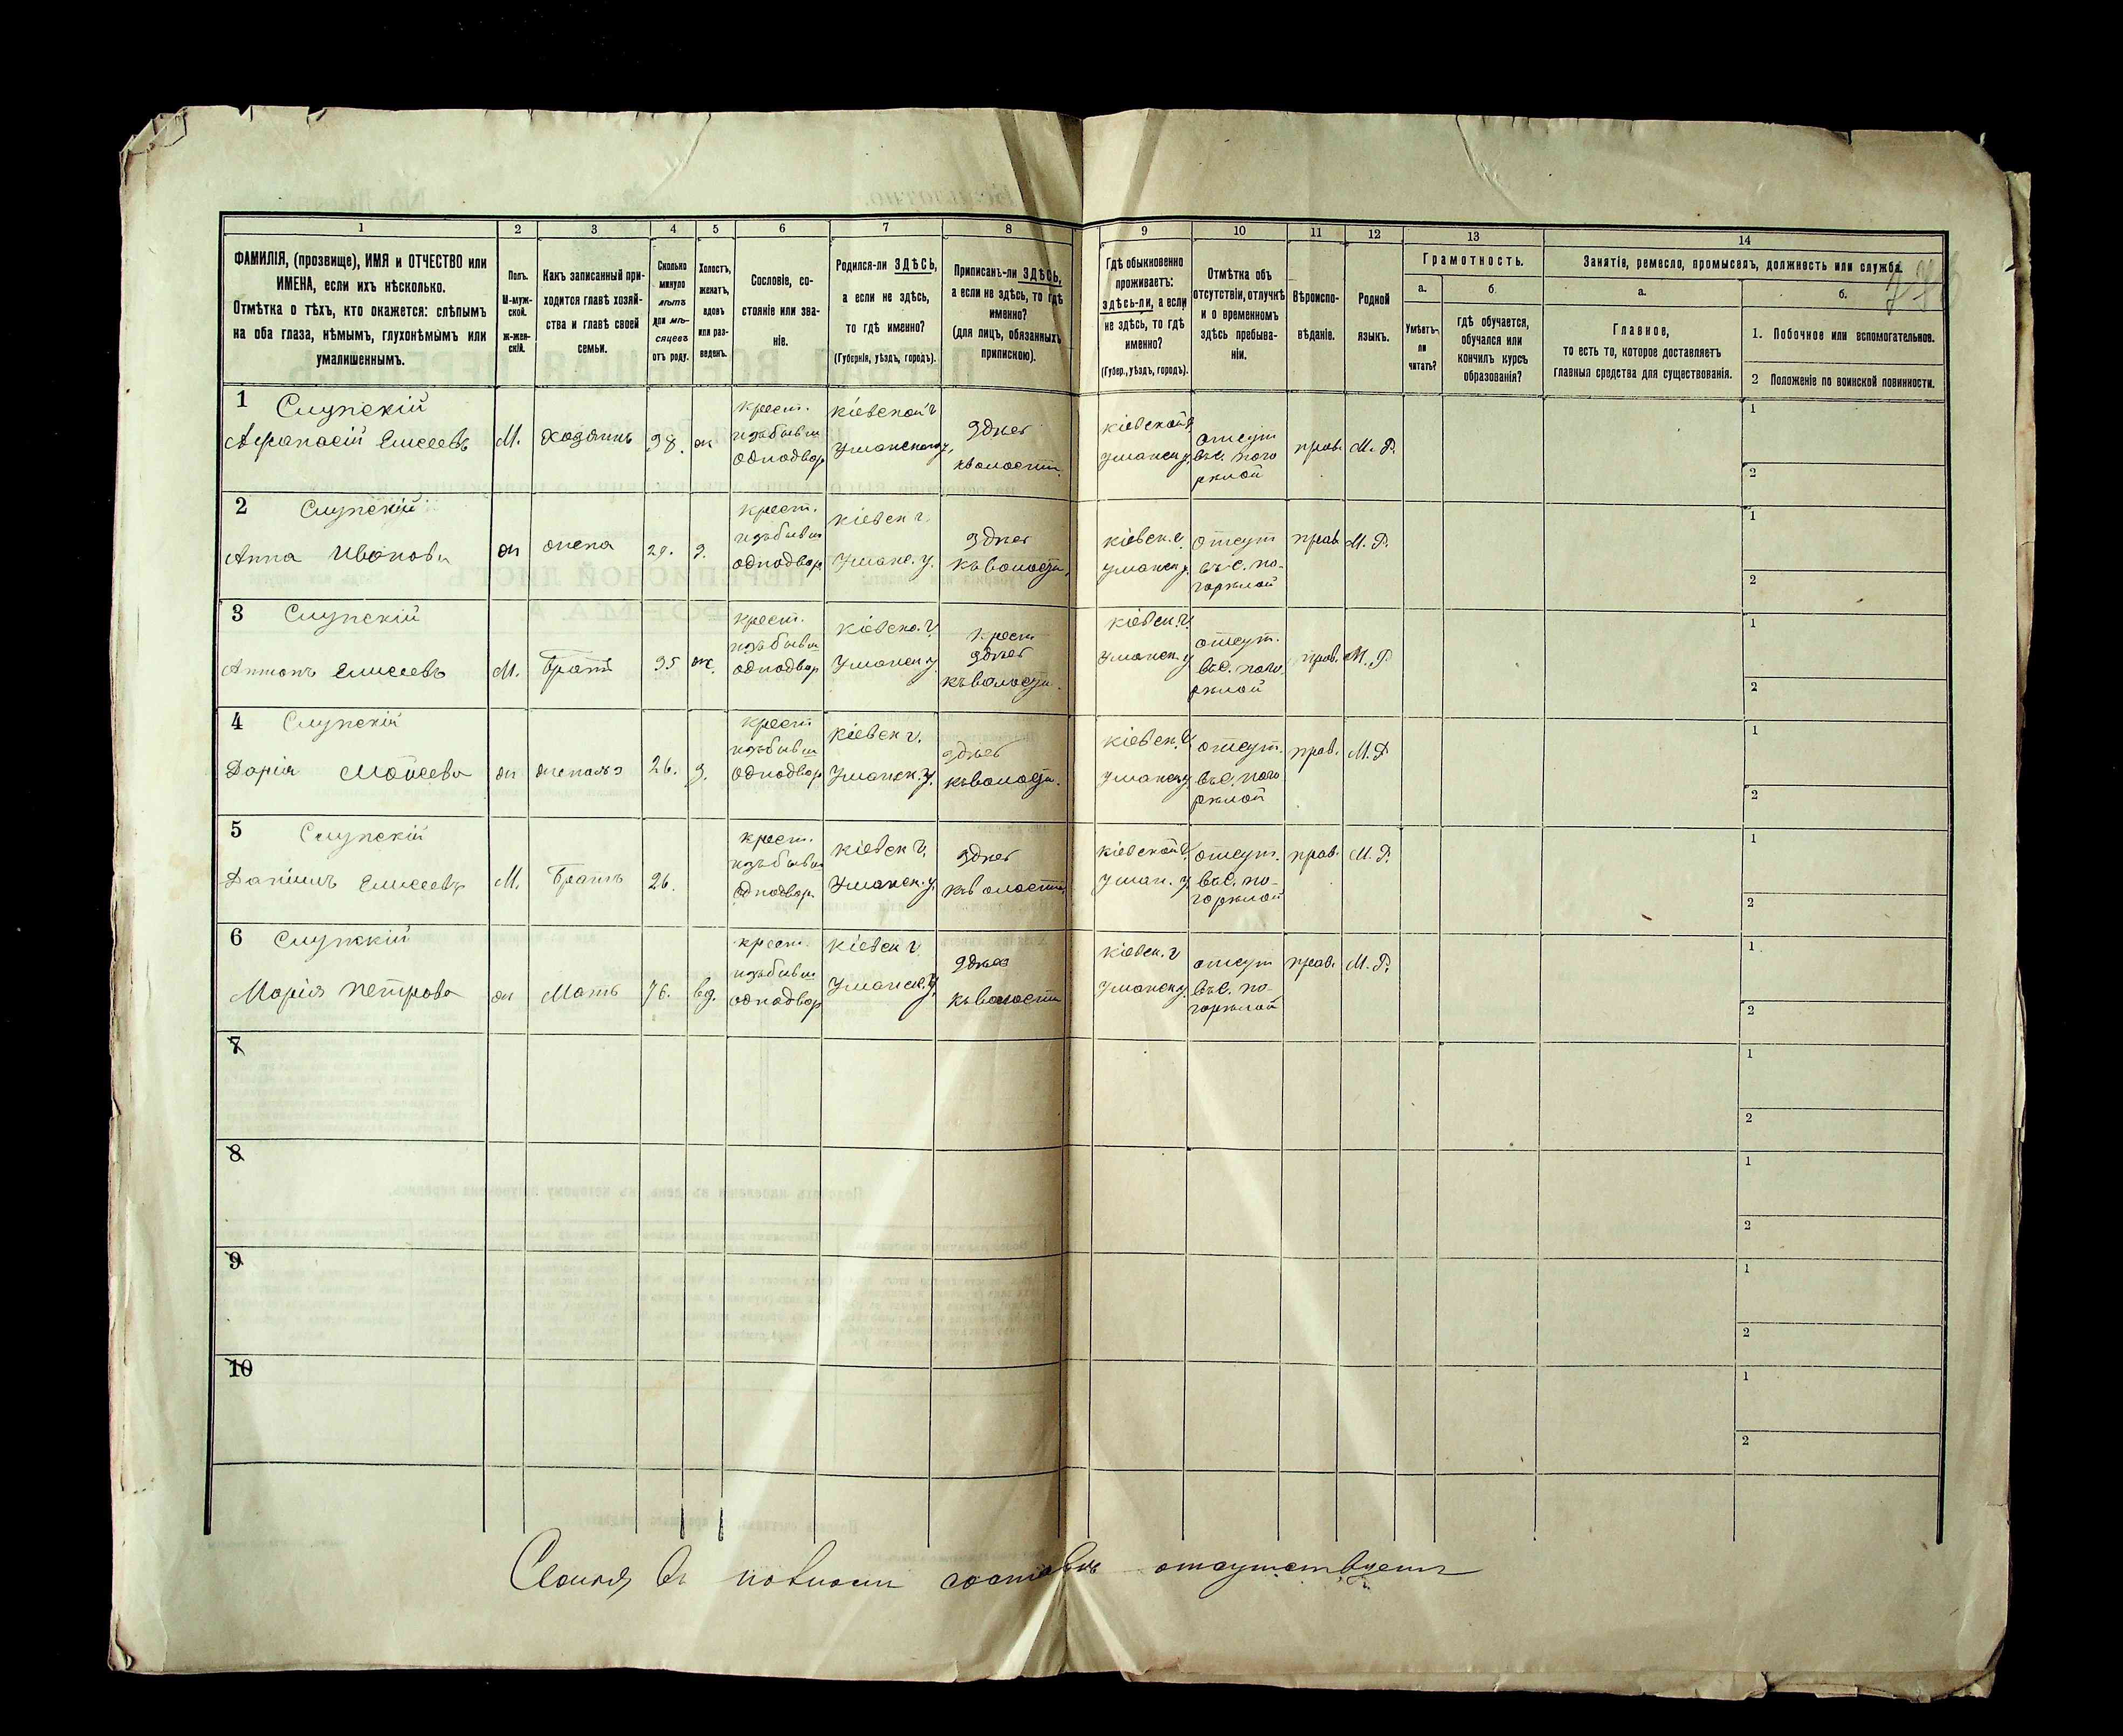 1 2 3 4 5 6 7 8 9 10 11 12 13 14
ФАМИЛІЯ, (прозвище), ИМЯ и ОТЧЕСТВО или
ИМЕНА, если ихъ нѣсколько.
Отмѣтка о тѣхъ, кто окажется: слѣпымъ
на оба глаза, нѣмымъ, глухонѣмымъ или
умалишеннымъ.
Полъ.
М-муж-
ской.
Ж-жен-
скій.
Какъ записанный при-
ходится главѣ хозяй-
ства и главѣ своей
семьи.
Сколько
минуло
лѣтъ
или мѣ-
сяцевъ
отъ роду.
Холостъ,
женатъ,
вдовъ
или раз-
веденъ.
Сословіе, со-
стояніе или зва-
ніе.
Родился-ли ЗДѢСЬ,
а если не здѣсь,
то гдѣ именно?
(Губернія, уѣздъ, городъ).
Приписанъ-ли ЗДѢСЬ,
а если не здѣсь, то гдѣ
именно?
(для лицъ, обязанныхъ
припискою).
Гдѣ обыкновенно
проживаетъ:
здѣсь-ли, а если
не здѣсь, то гдѣ
именно?
(Губер., уѣздъ, городъ).
Отмѣтка объ
отсутствіи, отлучкѣ
и о временномъ
здѣсь пребыва-
ніи.
Вѣроиспо-
вѣданіе.
Родной
языкъ.
Грамотность.
а.
Умѣетъ-
ли
читать?
б.
гдѣ обучается,
обучался или
кончилъ курсъ
образованія?
Занятіе, ремесло, промыселъ, должность или служба.
а.
Главное,
то есть то, которое доставляетъ
главныя средства для существованія.
б.
1. Побочное или вспомогательное.
2 Положеніе по воинской повинности.
1 Слупскій
Афанасій Елисеевъ
М.
хозяинъ
38.
ж
крест.
изъ бывш
однодвор
Кіевской г
Уманскаго у,
здѣсь
къ волости.
Кіевской г,
Уманск у.
отсут
въ с. пого
рѣлой
прав.
М. Р.
1
2
2 Слупскій
Анна Иванова
ж
жена
29.
з.
крест.
изъ бывш
однодвор
Кіевск г.
Уманс. у.
здѣсь
Кіевск. г,
Уманск у.
отсут
въ с. по-
горѣлой
прав
М. Р.
1
2
3 Слупскій
Антонъ Елисеевъ
М.
Братъ
35
ж.
крест.
изъ бывш
однодвор
Кіевско. г,
Уманск у.
крест
здѣсь
Кіевск. г.
Уманск. у
отсут.
въ с. пого
рѣлой
прав.
М. Р
1
2
4 Слупскій
Дарія Моисеева
ж
26.
з.
крест
изъ бывш
однодвор
Кіевск г.
Уманск. у.
здѣсь
Кіевск. г.
Уманск у.
отсут.
въ с. пого
рѣлой
прав.
М. Р
1
2
5 Слупскій
Даніилъ Елисеевъ
М.
Братъ
26.
крест.
изъ бывш
однодвор.
Кіевск г.
Уманск. у.
здѣсь
къ волости
Кіевской г.
Уман. у.
отсут.
въ с. по-
горѣлой
прав.
М. Р.
1
2
6 Слупскій
Марія Петрова
ж
Мать
76.
вд.
крест.
изъ бывш
однодвор
Кіевск г.
Уманск. у.
здѣсь
къ волости
Кіевск. г
Уманск у.
отсут
въ с. по-
горѣлой
прав.
М. Р.
1
2
7
1
2
8
1
2
9
1
2
10
1
2
Семья въ полномъ составѣ отсутствуетъ